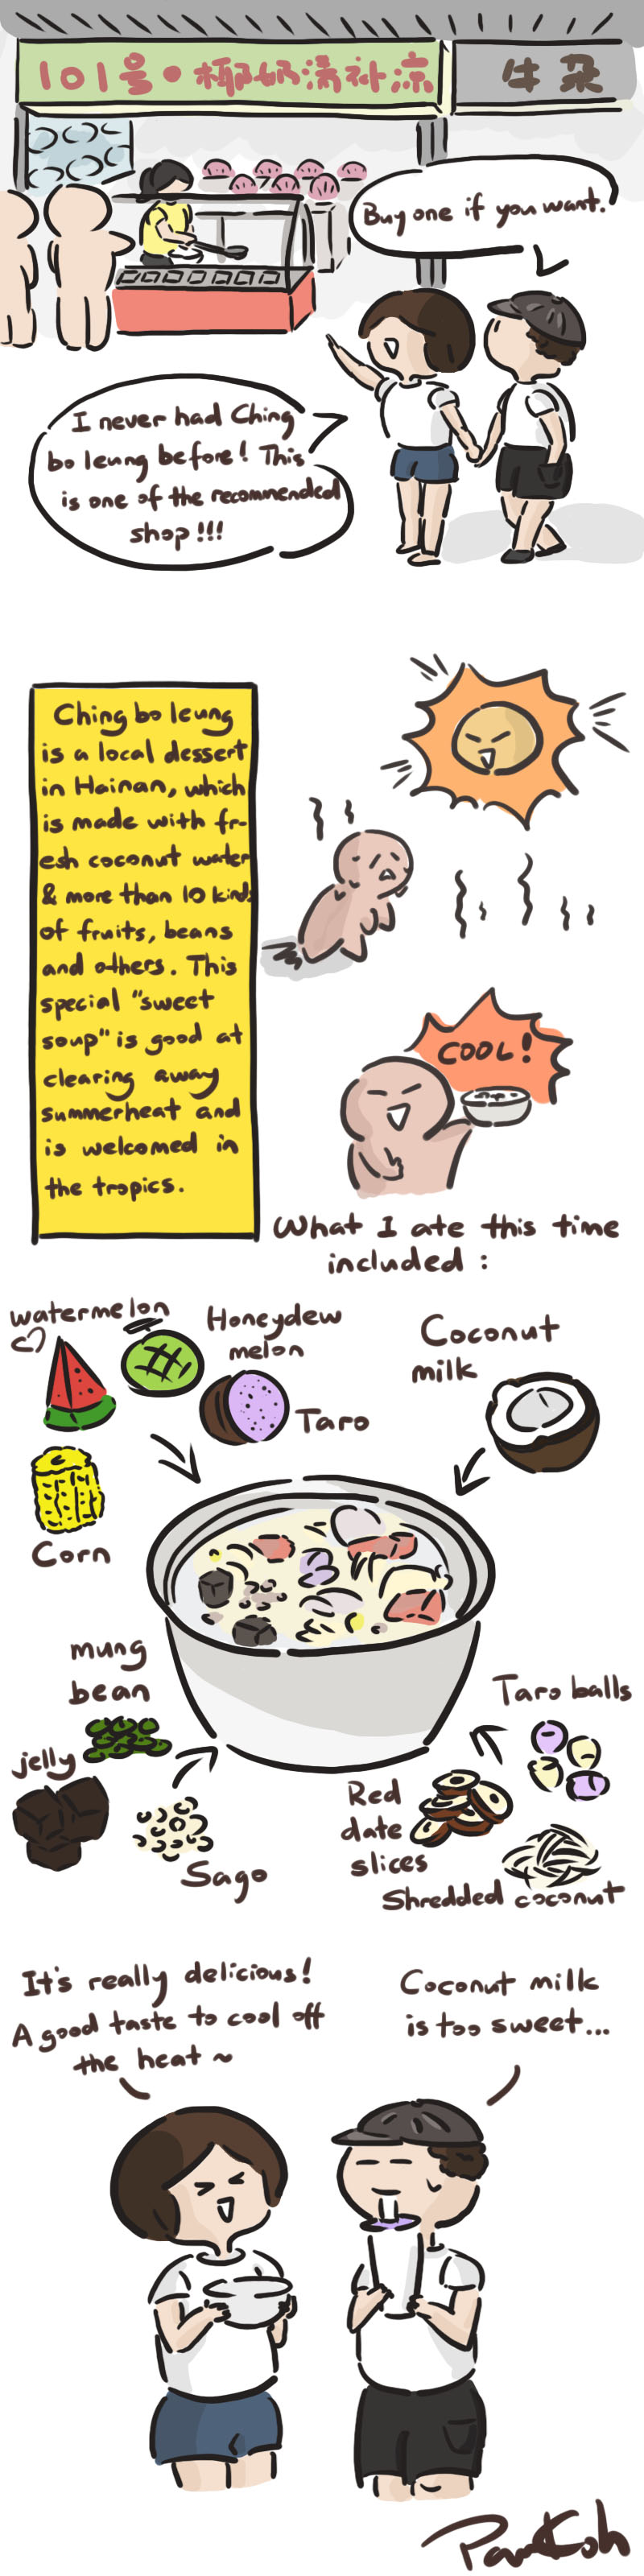 101号•椰奶清补凉
牛杂
Buy one if you want.
I never had Ching
bo leung before! This
is one of the recommended
shop!!!
Ching bo leung
is a local dessert
in Hainan, which
is made with fr-
esh coconut water
& more than 10 kinds
of fruits, beans
and others. This
special "sweet
soup" is good at
clearing away
summerheat and
is welcomed in
the tropics.
COOL!
What I ate this time
included :
watermelon
Honeydew
melon
Taro
Coconut
milk
Corn
mung
bean
jelly
Sago
Taro balls
Red
date
slices
Shredded coconut
It's really delicious!
A good taste to cool off
the heat ~
Coconut milk
is too sweet...
PamKoh